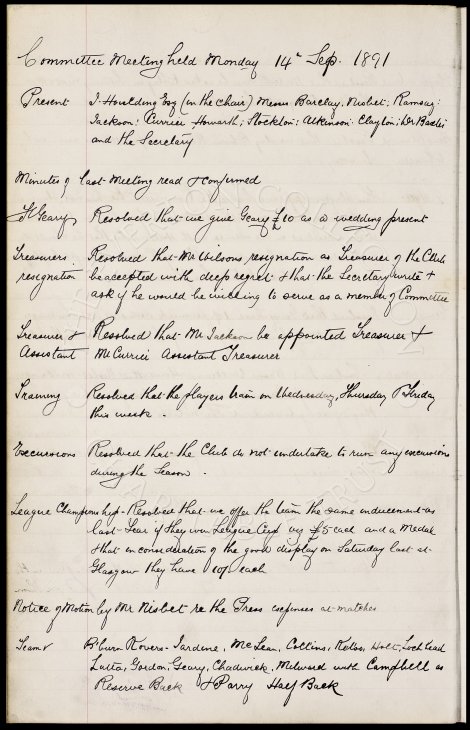 Committee Meeting held Monday 14th Sep. 1891
Present J. Houlding Esq (in the chair) Messrs Barclay, Nisbet; Ramsay;
Jackson; Currier Howarth; Stockton; Atkinson; Clayton; Dr Baxter
and the Secretary
Minutes of last Meeting read & confirmed
Geary Resolved that we give Geary £10 as a wedding present
Treasurers Resolved that Mr Wilsons resignation as Treasurer of the Club
resignation be accepted with deep regret & that the Secretary write &
ask if he would be willing to serve as a member of Committee
Treasurer & Resolved that Mr Jackson be appointed Treasurer &
Assistant Mr Currier Assistant Treasurer
Training Resolved that the players train on Wednesday, Thursday & Friday
this week.
Excursions Resolved that the Club do not undertake to run any excursions
during the Season.
League Championship - Resolved that we offer the team the same inducement as
last Year if they win League Cup viz £5 each and a Medal
& that in consideration of the good display on Saturday last at
Glasgow they have 10/- each
Notice of Motion by Mr Nisbet re the Press expenses at matches
Team v B'burn Rovers - Jardine, McLean, Collins, Kelso, Holt, Lochhead
Latta, Gordon, Geary, Chadwick, Milward with Campbell as
Reserve Back & Parry Half Back